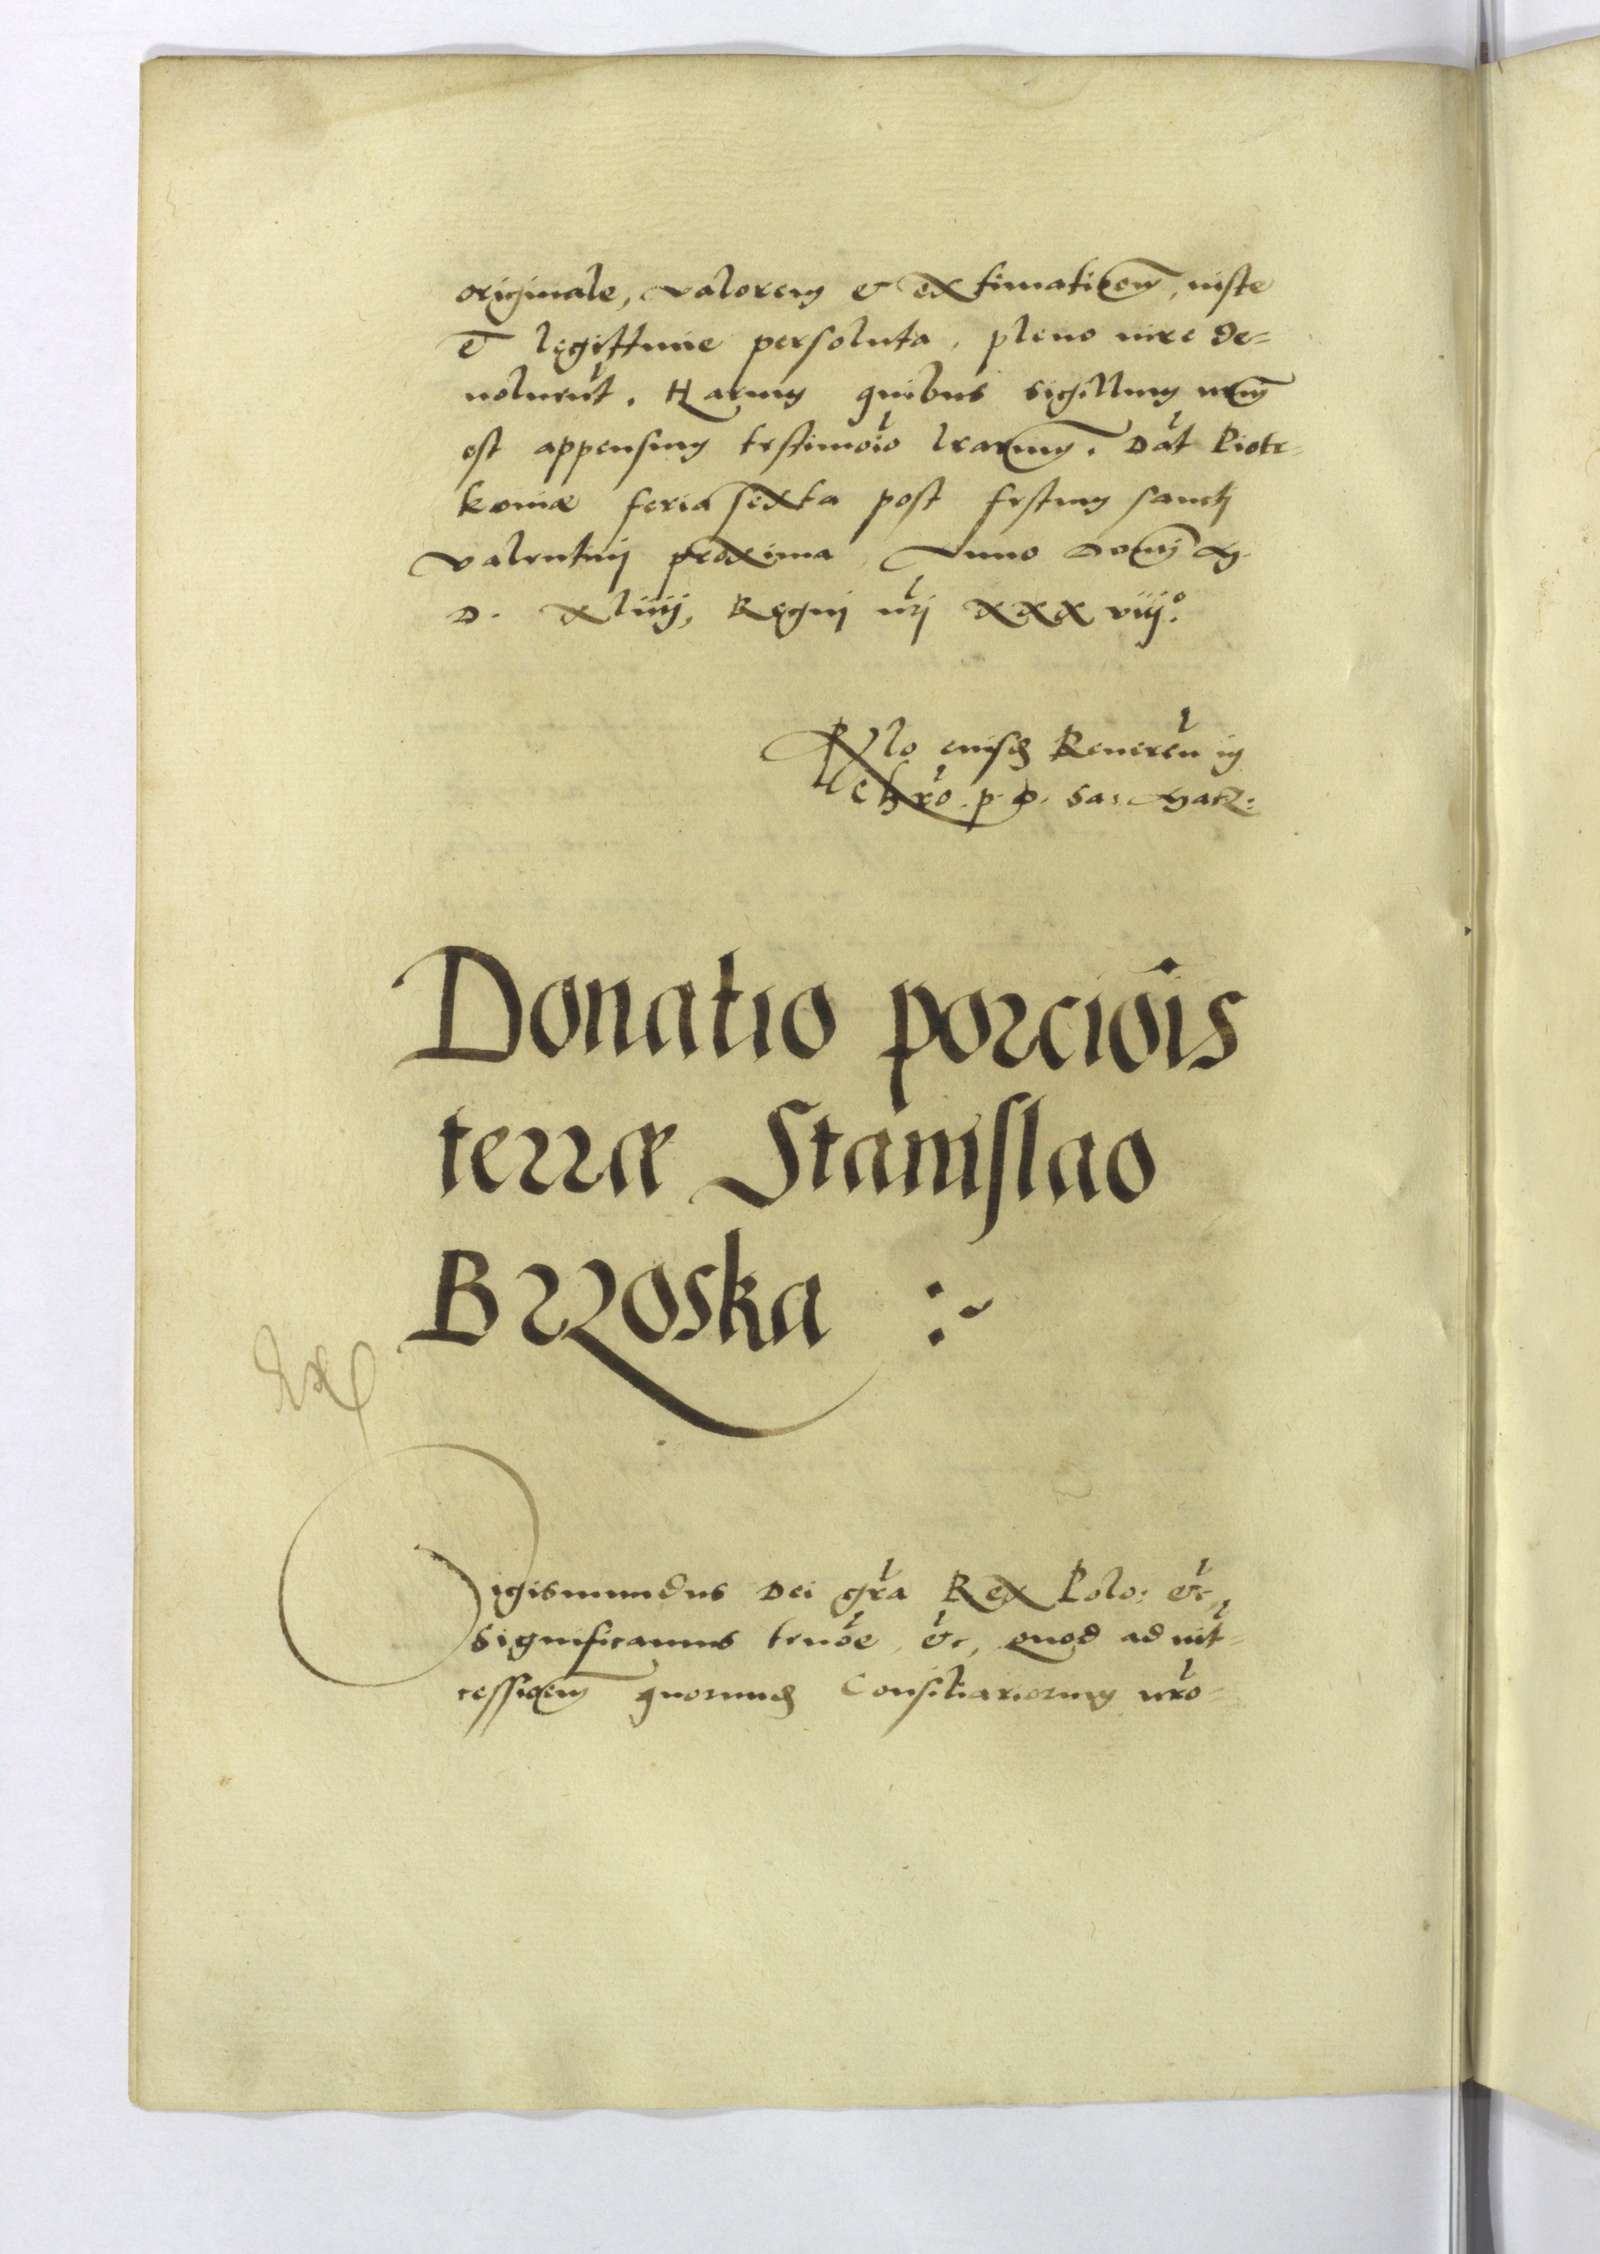 originale, valorem et extimatiõem, iuste
et legittime persoluta, pleno iure de=
volverũt. Harum quibus sigillum nrm̃
est appensum testimoĩo lrarum̃. Dat̃ Piotr=
koviæ feria sexta post festum sancti
Valentinj proxima, Anno Domĩ M.
D. xliiij, Regnj nr̃j xxx viijº.
R̃lo eiusd Reveren̄
 p. D. Sa: Matz:
Donatio porcioĩs
terræ Stanislao
Brzoska :~
Sigismundus Dei gr̃a Rex Polo: etc̃,
Significamus tenõe, etc̃, quod ad int̃=
cessiõem quorund Consiliariorum nr̃o=